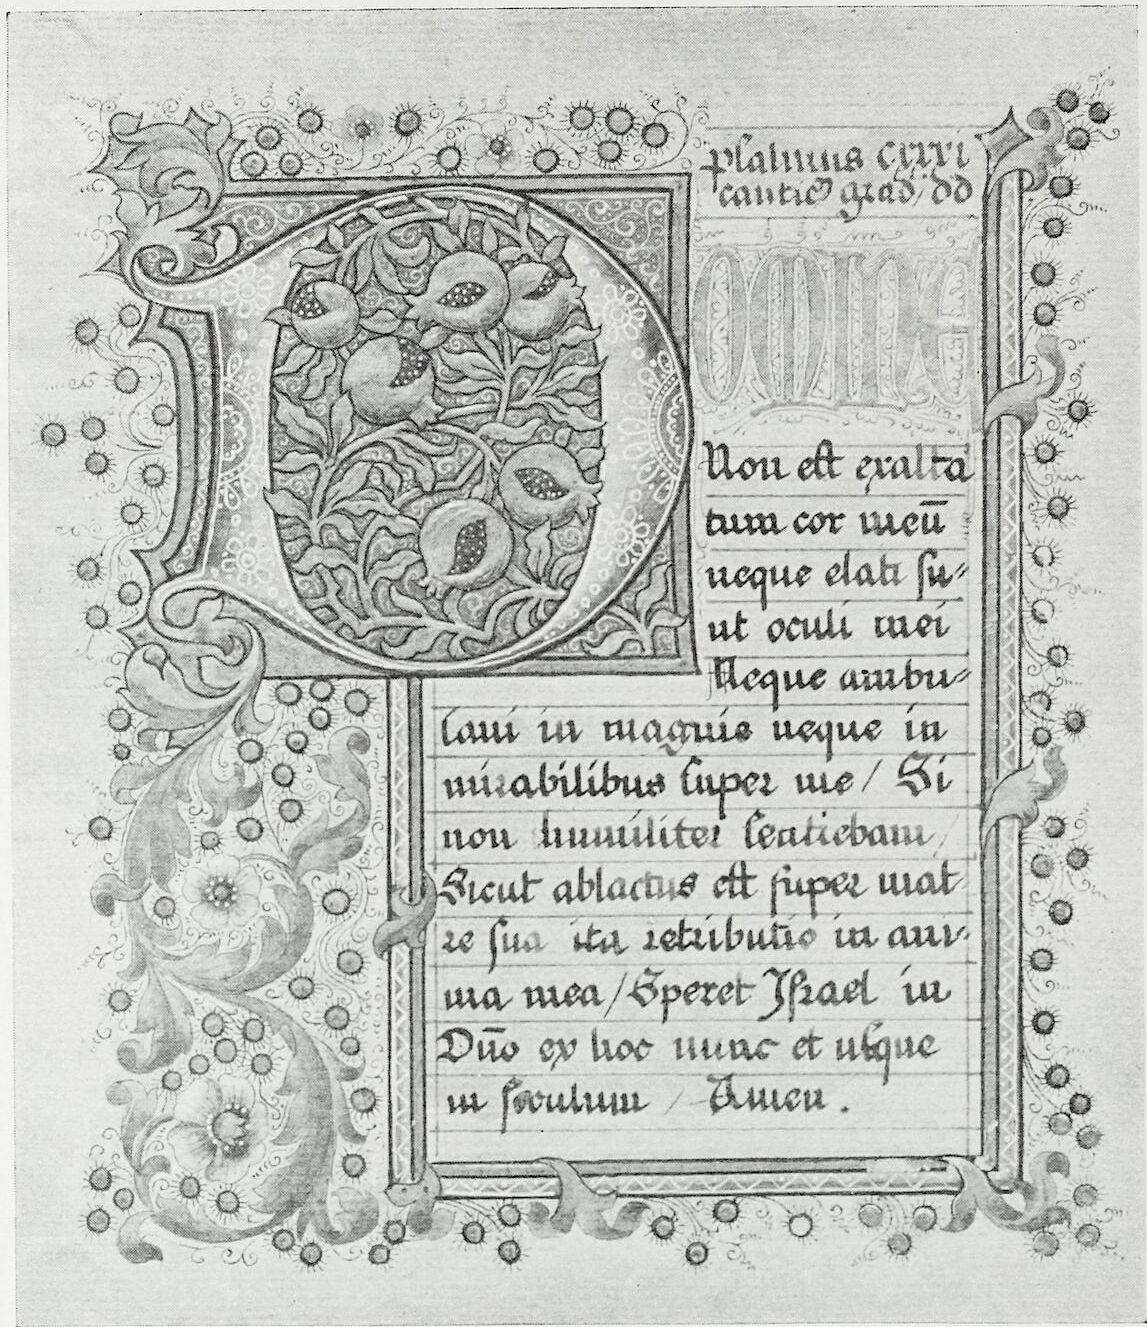 psalmus CXXXI
cantic grad/ dd
DOMINE
Non est exalta
tum cor meū
neque elati su-
ut oculi mei
Neque ambu-
lavi in magnis neque in
mirabilibus super me / Si
non humiliter sentiebam /
Sicut ablactus est super mat
re sua ita retributio in ani-
ma mea / Speret Israel in
Dño ex hoc nunc et usque
in seculum / Amen .